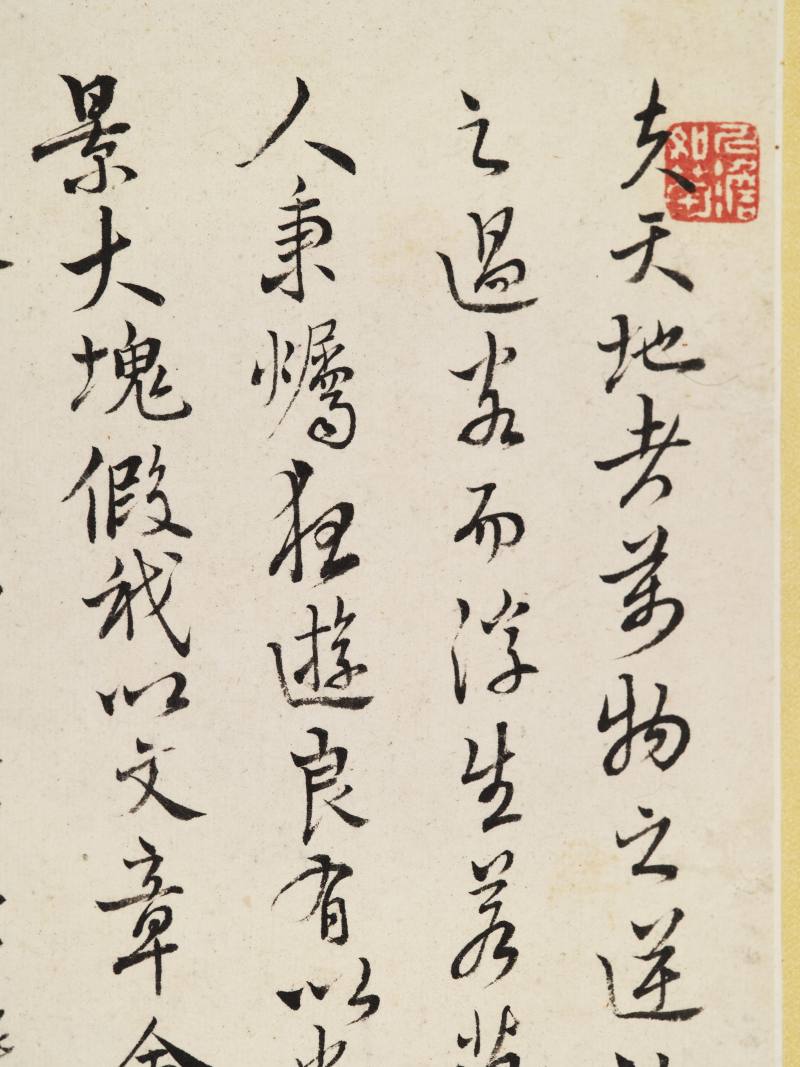 人澹如菊
夫天地者萬物之逆
之過客而浮生若
人秉爥狂遊良有以
景大塊假我以文章